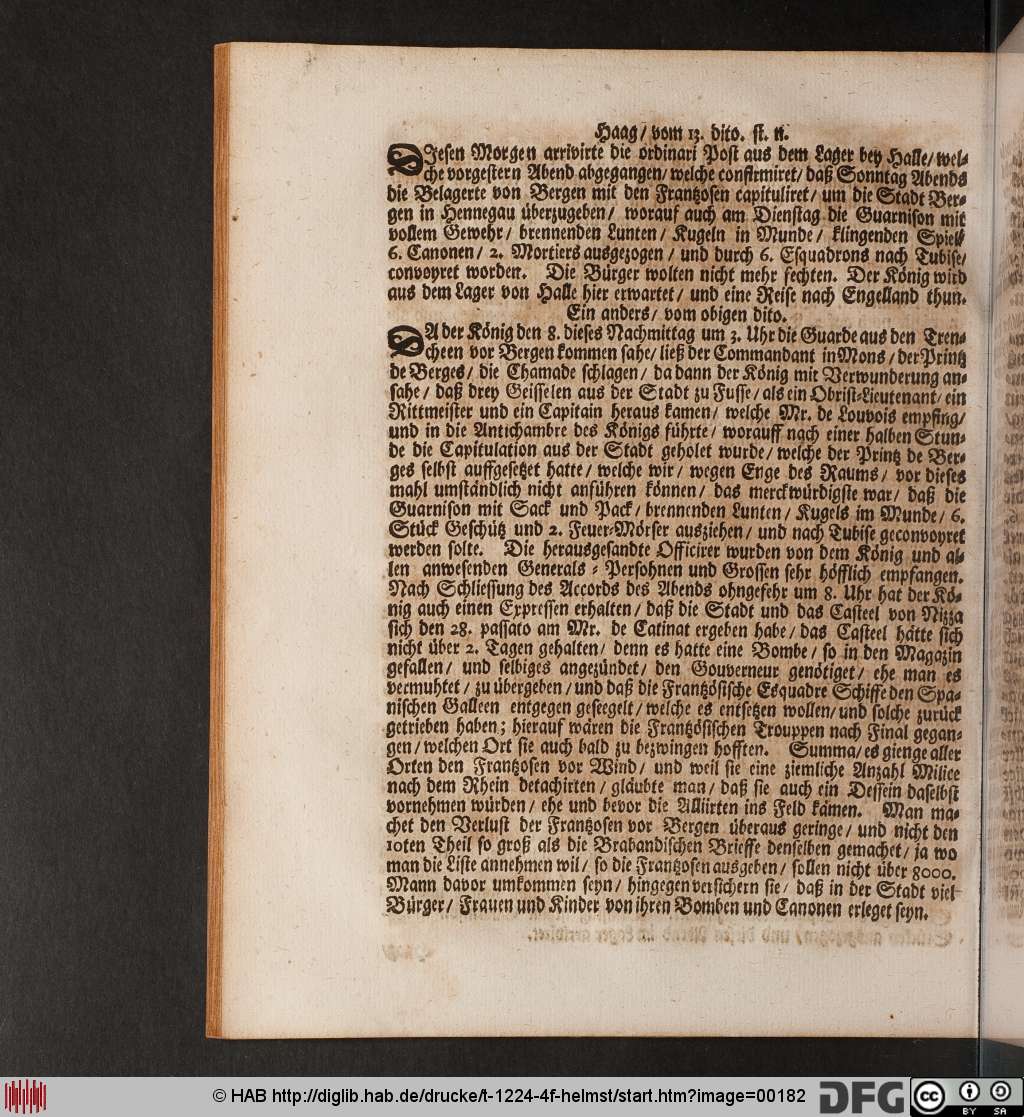 Haag/ vom 13. dito. st. n.
DIesen Morgen arrivirte die ordinari Post aus dem Lager bey Halle/ wel-
che vorgestern Abend abgegangen/ welche confirmiret/ daß Sonntag Abends
die Belagerte von Bergen mit den Frantzosen capituliret/ um die Stadt Ber-
gen in Hennegau überzugeben/ worauf auch am Dienstag die Guarnison mit
vollem Gewehr/ brennenden Lunten/ Kugeln in Munde/ klingenden Spiel/
6. Canonen/ 2. Mortiers ausgezogen/ und durch 6. Esquadrons nach Tubise/
convoyret worden. Die Bürger wolten nicht mehr fechten. Der König wird
aus dem Lager von Halle hier erwartet/ und eine Reise nach Engelland thun.
Ein anders/ vom obigen dito.
DA der König den 8. dieses Nachmittag um 3. Uhr die Guarde aus den Tren-
cheen vor Bergen kommen sahe/ ließ der Commandant in Mons/ der Printz
de Berges/ die Chamade schlagen/ da dann der König mit Verwunderung an-
sahe/ daß drey Geisselen aus der Stadt zu Fusse/ als ein Obrist-Lieutenant/ ein
Rittmeister und ein Capitain heraus kamen/ welche Mr. de Louvois empfing/
und in die Antichambre des Königs führte/ worauff nach einer halben Stun-
de die Capitulation aus der Stadt geholet wurde/ welche der Printz de Ber-
ges selbst auffgesetzet hatte/ welche wir/ wegen Enge des Raums/ vor dieses
mahl umständlich nicht anführen können/ das merckwürdigste war/ daß die
Guarnison mit Sack und Pack/ brennenden Lunten/ Kugels im Munde/ 6.
Stück Geschütz und 2. Feuer-Mörser ausziehen/ und nach Tubise geconvoyret
werden solte. Die herausgesandte Officirer wurden von dem König und al-
len anwesenden Generals-Persohnen und Grossen sehr höfflich empfangen.
Nach Schliessung des Accords des Abends ohngefehr um 8. Uhr hat der Kö-
nig auch einen Expressen erhalten/ daß die Stadt und das Casteel von Nizza
sich den 28. passato am Mr. de Catinat ergeben habe/ das Casteel hätte sich
nicht über 2. Tagen gehalten/ denn es hatte eine Bombe/ so in den Magazin
gefallen/ und selbiges angezündet/ den Gouverneur genötiget/ ehe man es
vermuhtet/ zu übergeben/ und daß die Frantzösische Esquadre Schiffe den Spa-
nischen Galleen entgegen geseegelt/ welche es entsetzen wollen/ und solche zurück
getrieben haben; hierauf wären die Frantzösischen Trouppen nach Final gegan-
gen/ welchen Ort sie auch bald zu bezwingen hofften. Summa/ es gienge aller
Orten den Frantzosen vor Wind/ und weil sie eine ziemliche Anzahl Milice
nach dem Rhein detachirten/ gläubte man/ daß sie auch ein Dessein daselbst
vornehmen würden/ ehe und bevor die Alliirten ins Feld kämen. Man ma-
chet den Verlust der Frantzosen vor Bergen überaus geringe/ und nicht den
10ten Theil so groß als die Brabandischen Brieffe denselben gemachet/ ja wo
man die Liste annehmen wil/ so die Frantzosen ausgeben/ sollen nicht über 8000.
Mann davor umkommen seyn/ hingegen versichern sie/ daß in der Stadt viel
Bürger/ Frauen und Kinder von ihren Bomben und Canonen erleget seyn.
© HAB http://diglib.hab.de/drucke/t-1224-4f-helmst/start.htm?image=00182
DFG
cc
BY SA